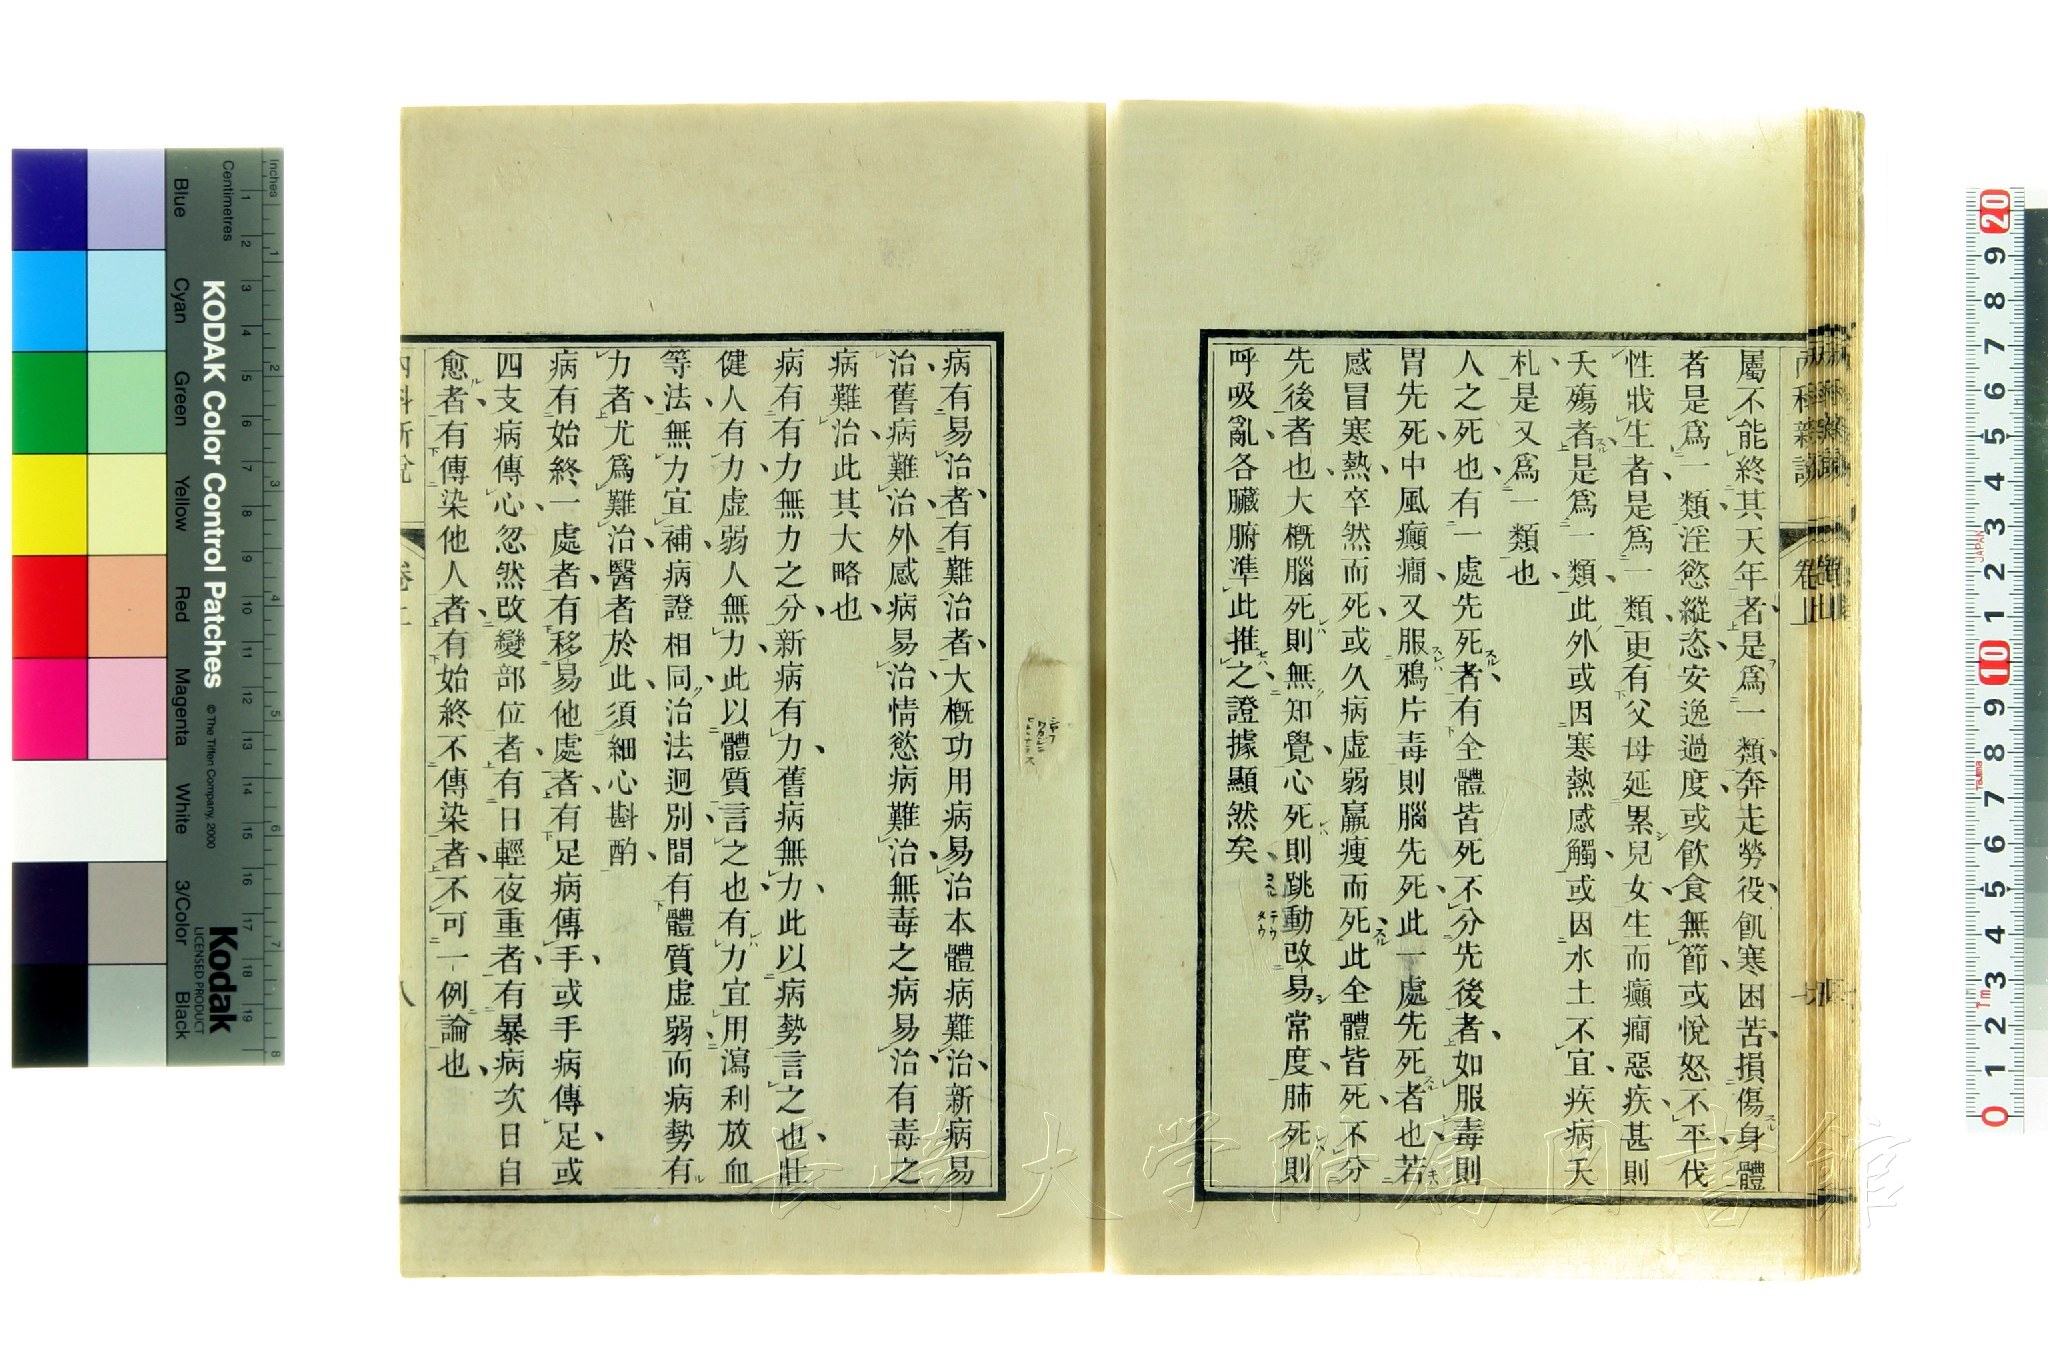 內科新說 卷上 七
屬不能終其天年者是爲一類奔走勞役飢寒困苦損傷身體
者是爲一類淫慾縱恣安逸過度或飮食無節或悅怒不平伐
性戕生者是爲一類更有父母延累兒女生而癲癎惡疾甚則
夭殤者是爲一類此外或因寒熱感觸或因水土不宜疾病夭
札是又爲一類也
人之死也有一處先死者有全體皆死不分先後者如服毒則
胃先死中風癲癎又服鴉片毒則腦先死此一處先死者也若
感冒寒熱卒然而死或久病虛弱羸瘦而死此全體皆死不分
先後者也大概腦死則無知覺心死則跳動改易常度肺死則
呼吸亂各臟腑準此推之證據顯然矣
病有易治者有難治者大概功用病易治本體病難治新病易
治舊病難治外感病易治情慾病難治無毒之病易治有毒之
病難治此其大略也
病有有力無力之分新病有力舊病無力此以病勢言之也壯
健人有力虛弱人無力此以體質言之也有力宜用瀉利放血
等法無力宜補病證相同治法迥別間有體質虛弱而病勢有
力者尤爲難治醫者於此須細心斟酌
病有始終一處者有移易他處者有足病傳手或手病傳足或
四支病傳心忽然改變部位者有日輕夜重者有暴病次日自
愈者有傳染他人者有始終不傳染者不可一例論也
內科新說 卷上 八
KODAK Color Control Patches
© The Tiffen Company, 2000
Kodak
LICENSED PRODUCT
Inches
Centimetres
Blue
Cyan
Green
Yellow
Red
Magenta
White
3/Color
Black
長崎大学附属図書館